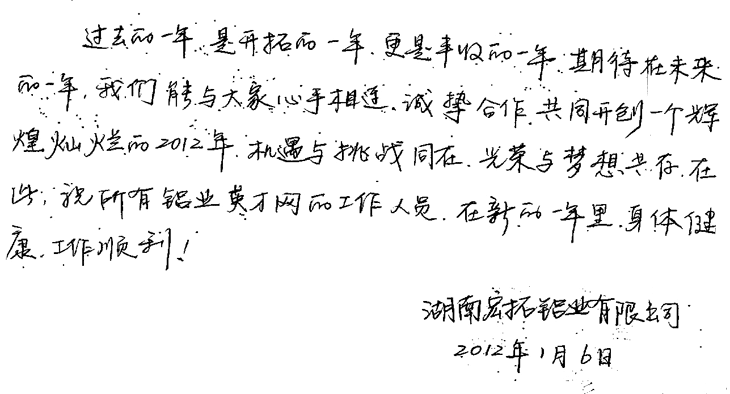 过去的一年,是开拓的一年,更是丰收的一年,期待在未来
的一年,我们能与大家心手相连、诚挚合作,共同开创一个辉
煌灿烂的2012年,机遇与挑战同在,光荣与梦想共存,在
此,祝所有铝业英才网的工作人员,在新的一年里,身体健
康,工作顺利!
湖南宏拓铝业有限公司
2012年1月6日